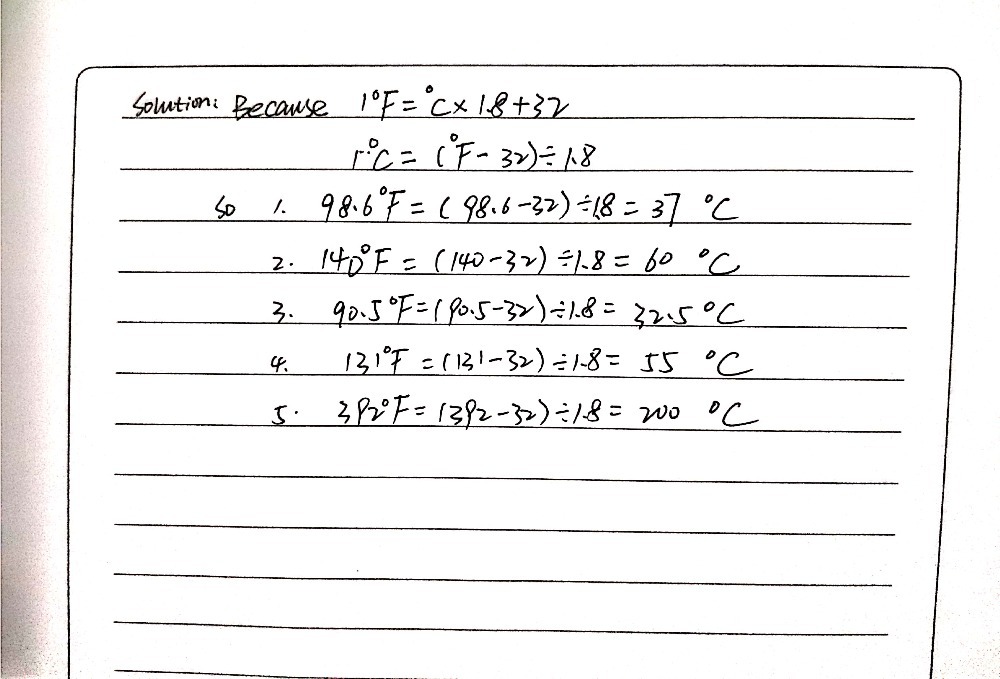 Solution: Because 1°F = °C × 1.8 + 32
1°C = (°F - 32) ÷ 1.8
So 1. 98.6°F = (98.6 - 32) ÷ 1.8 = 37 °C
2. 140°F = (140 - 32) ÷ 1.8 = 60 °C
3. 90.5°F = (90.5 - 32) ÷ 1.8 = 32.5 °C
4. 131°F = (131 - 32) ÷ 1.8 = 55 °C
5. 392°F = (392 - 32) ÷ 1.8 = 200 °C